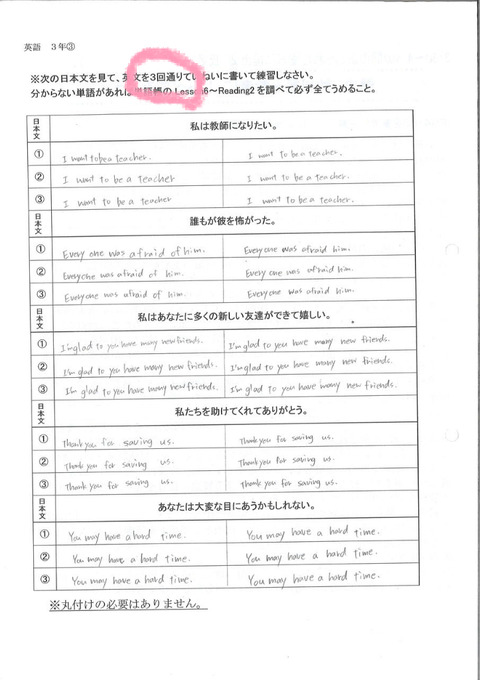 英語 3年③
※次の日本文を見て、英文を3回通りていねいに書いて練習しなさい。
分からない単語があれば単語帳の Lesson6～Reading2 を調べて必ず全てうめること。
日本文 私は教師になりたい。
① I want to be a teacher. I want to be a teacher.
② I want to be a teacher I want to be a teacher.
③ I want to be a teacher I want to be a teacher.
日本文 誰もが彼を怖がった。
① Every one was afraid of him. Everyone was afraid him.
② Everyone was afraid of him. Everyone was afraid him.
③ Everyone was afraid of him. Everyone was afraid him.
日本文 私はあなたに多くの新しい友達ができて嬉しい。
① I'm glad to you have many new friends. I'm glad to you have many new friends.
② I'm glad to you have many new friends. I'm glad to you have many new friends.
③ I'm glad to you have many new friends. I'm glad to you have many new friends.
日本文 私たちを助けてくれてありがとう。
① Thank you for saving us. Thank you for saving us.
② Thank you for saving us. Thank you for saving us.
③ Thank you for saving us. Thank you for saving us.
日本文 あなたは大変な目にあうかもしれない。
① You may have a hard time. You may have a hard time.
② You may have a hard time. You may have a hard time.
③ You may have a hard time. You may have a hard time.
※丸付けの必要はありません。